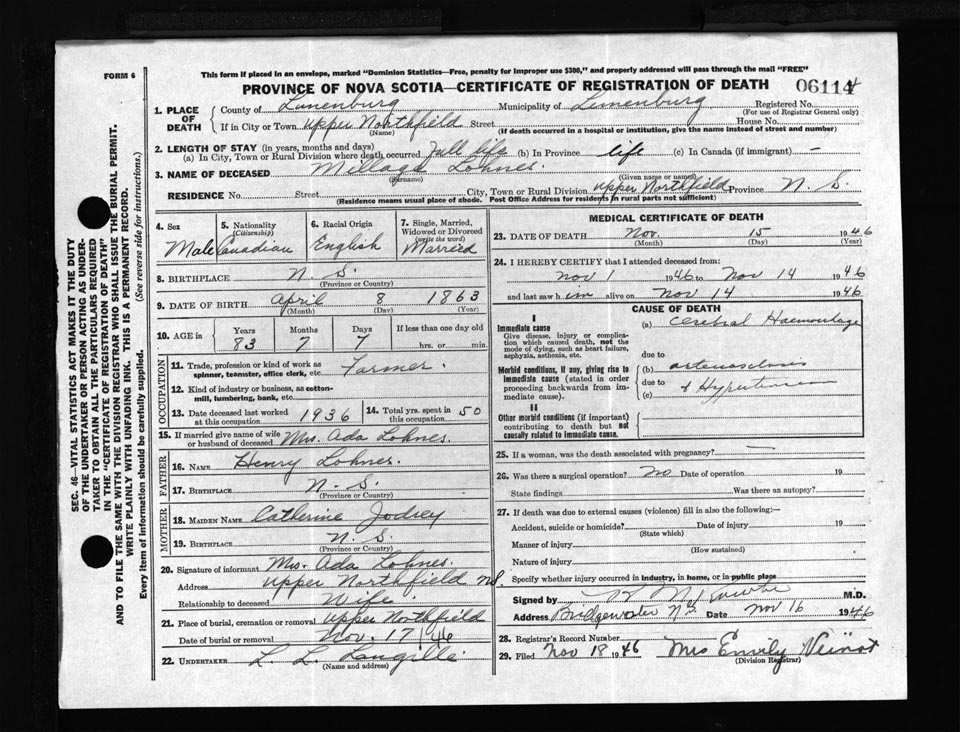 FORM 6
This form if placed in an envelope, marked "Dominion Statistics—Free, penalty for improper use $300," and properly addressed will pass through the mail "FREE"
PROVINCE OF NOVA SCOTIA—CERTIFICATE OF REGISTRATION OF DEATH 06114
1. PLACE OF DEATH County of Lunenburg Municipality of Lunenburg Registered No.
(For use of Registrar General only)
If in City or Town Upper Northfield Street House No.
(Name) (If death occurred in a hospital or institution, give the name instead of street and number)
2. LENGTH OF STAY (in years, months and days)
(a) In City, Town or Rural Division where death occurred full life (b) In Province life (c) In Canada (if immigrant) —
3. NAME OF DECEASED Millage Lohnes.
(Surname) (Given name or names)
RESIDENCE No. Street City, Town or Rural Division Upper Northfield Province N. S.
(Residence means usual place of abode. Post Office Address for residents in rural parts not sufficient)
4. Sex Male
5. Nationality (Citizenship) Canadian
6. Racial Origin English
7. Single, Married, Widowed or Divorced (write the word) Married
8. BIRTHPLACE N. S.
(Province or Country)
9. DATE OF BIRTH April 8 1863
(Month) (Day) (Year)
10. AGE in Years Months Days If less than one day old
83 7 7 hrs. or min.
OCCUPATION
11. Trade, profession or kind of work as spinner, teamster, office clerk, etc. Farmer.
12. Kind of industry or business, as cotton-mill, lumbering, bank, etc.
13. Date deceased last worked at this occupation 1936 14. Total yrs. spent in this occupation 50
15. If married give name of wife or husband of deceased Mrs. Ada Lohnes.
FATHER
16. NAME Henry Lohnes.
17. BIRTHPLACE N. S.
(Province or Country)
MOTHER
18. MAIDEN NAME Catherine Jodrey
19. BIRTHPLACE N. S.
(Province or Country)
20. Signature of informant Mrs. Ada Lohnes.
Address Upper Northfield NS.
Relationship to deceased Wife.
21. Place of burial, cremation or removal Upper Northfield
Date of burial or removal Nov. 17/46
22. UNDERTAKER L. L. Langille
(Name and address)
MEDICAL CERTIFICATE OF DEATH
23. DATE OF DEATH Nov. 15 1946
(Month) (Day) (Year)
24. I HEREBY CERTIFY that I attended deceased from:
Nov 1 1946 to Nov 14 1946
and last saw him alive on Nov 14 1946
CAUSE OF DEATH
I
Immediate cause
Give disease, injury or complication which caused death, not the mode of dying, such as heart failure, asphyxia, asthenia, etc.
(a) Cerebral Haemorrhage
due to
Morbid conditions, if any, giving rise to immediate cause (stated in order proceeding backwards from immediate cause).
(b) arteriosclerosis
due to & Hypertension
(c)
II
Other morbid conditions (if important) contributing to death but not causally related to immediate cause.
25. If a woman, was the death associated with pregnancy? —
26. Was there a surgical operation? no Date of operation 19
State findings Was there an autopsy?
27. If death was due to external causes (violence) fill in also the following:—
Accident, suicide or homicide? Date of injury 19
(State which)
Manner of injury
(How sustained)
Nature of injury
Specify whether injury occurred in industry, in home, or in public place
Signed by M.D.
Address Bridgewater N.S. Date Nov 16 1946
28. Registrar's Record Number
29. Filed Nov 18 1946 Mrs Emily Veinot
(Division Registrar)
SEC. 46—VITAL STATISTICS ACT MAKES IT THE DUTY
OF THE UNDERTAKER OR PERSON ACTING AS UNDER-
TAKER TO OBTAIN ALL THE PARTICULARS REQUIRED
IN THE "CERTIFICATE OF REGISTRATION OF DEATH"
AND TO FILE THE SAME WITH THE DIVISION REGISTRAR WHO SHALL ISSUE THE BURIAL PERMIT.
WRITE PLAINLY WITH UNFADING INK. THIS IS A PERMANENT RECORD.
Every item of information should be carefully supplied. (See reverse side for instructions.)